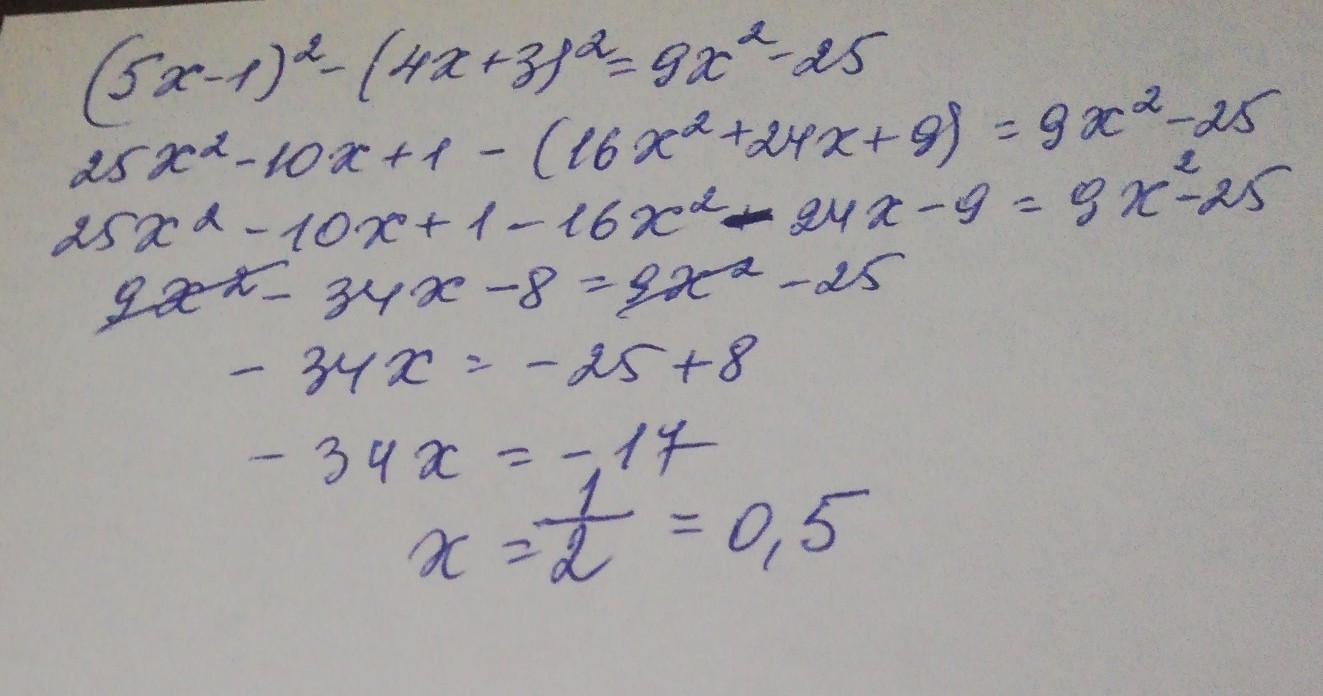 (5x-1)² - (4x+3)² = 9x² - 25
25x² - 10x + 1 - (16x² + 24x + 9) = 9x² - 25
25x² - 10x + 1 - 16x² - 24x - 9 = 9x² - 25
9x² - 34x - 8 = 9x² - 25
- 34x = - 25 + 8
- 34x = - 17
x = 1/2 = 0,5